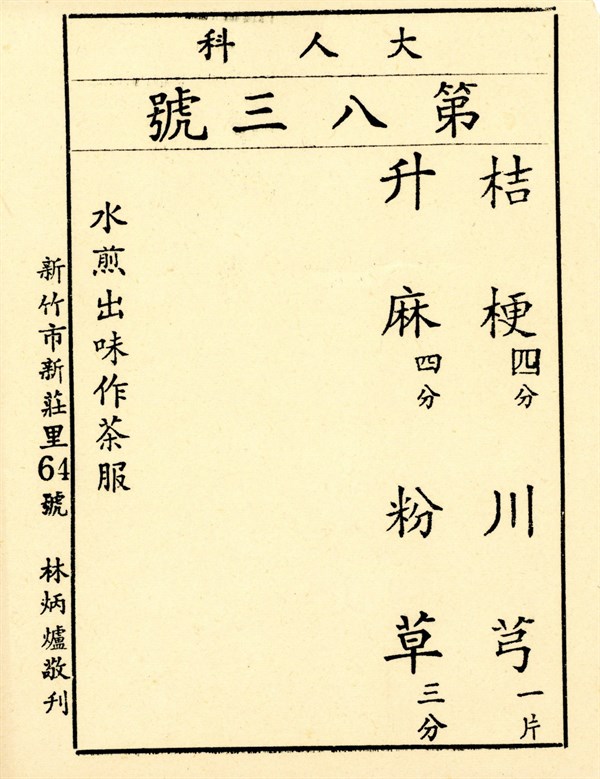 大人科
第八三號
桔梗四分 川芎一片
升麻四分 粉草三分
水煎出味作茶服
新竹市新莊里64號 林炳爐敬刋